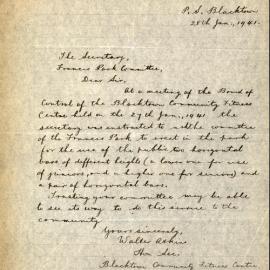 P. S. Blacktown
28th Jan., 1941.
The Secretary,
Francis Park Committee,
Dear Sir,
At a meeting of the Board of
Control of the Blacktown Community Fitness
Centre held on the 27th Jan., 1941 the
secretary was instructed to ask the committee
of the Francis Park to erect in the park
for the use of the public two horizontal
bars of different heights (a lower one for use
of juniors, and a higher one for seniors) and
a pair of horizontal bars.
Trusting your committee may be able
to see its way to do this service to the
community
Yours sincerely,
Walter
Hon Sec.
Blacktown Community Fitness Centre